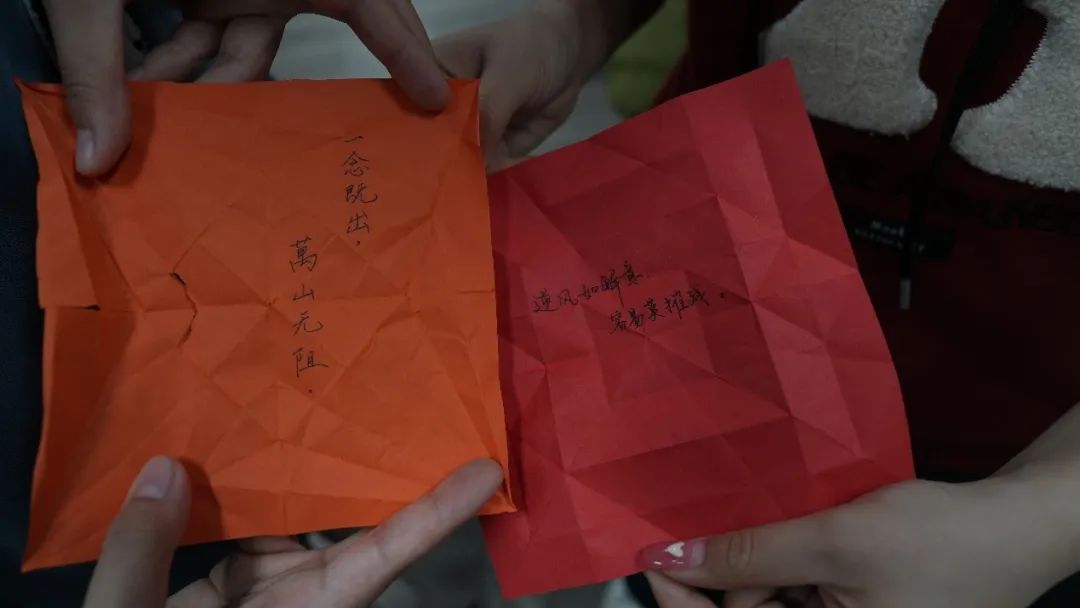 一念既出，
萬山无阻.
逆风如解意，
容易莫摧残。